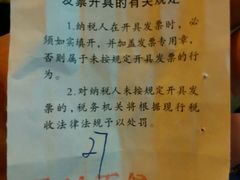 发票开具的有关规定
1.纳税人在开具发票时，必
须如实填开，并加盖发票专用章，
否则属于未按规定开具发票的行
为。
2.对纳税人未按规定开具发
票的，税务机关将根据现行税
收法律法规予以处罚。
27